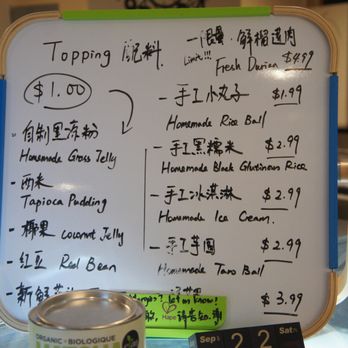 Topping 配料
$1.00
- 自制黑凉粉
Homemade Grass Jelly
- 西米
Tapioca Pudding
- 椰果 coconut Jelly
- 红豆 Red Bean
- 新鲜
- 限量·鲜榴莲肉
Limit!!! Fresh Durian $4.99
- 手工小丸子 $1.99
Homemade Rice Ball
- 手工黑糯米 $2.99
Homemade Black Glutinous Rice
- 手工冰淇淋 $2.99
Homemade Ice Cream.
- 手工芋圆 $2.99
Homemade Taro Ball
$3.99
let us know!
请告知,谢
ORGANIC • BIOLOGIQUE
Sept 22 Sat